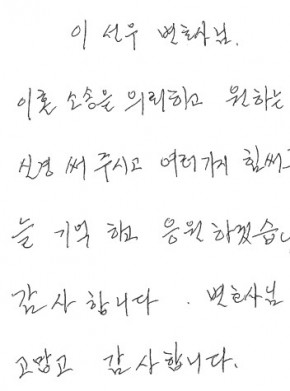 이 선우 변호사님.
이혼 소송을 의뢰하고 원하는
신경 써 주시고 여러가지 힘써
늘 기억 하고 응원 하겠습니
감사합니다. 변호사님
고맙고 감사합니다.